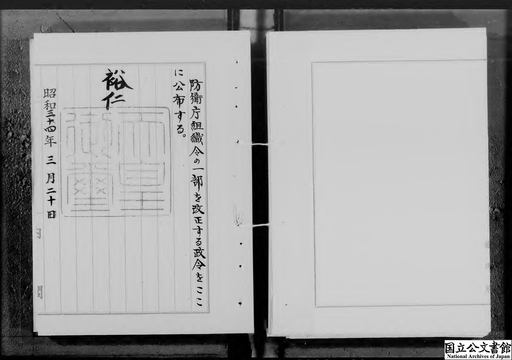 防衛庁組織令の一部を改正する政令をここ
に公布する。
裕仁
天皇御璽
昭和三十四年三月二十日
月
国立公文書館
National Archives of Japan